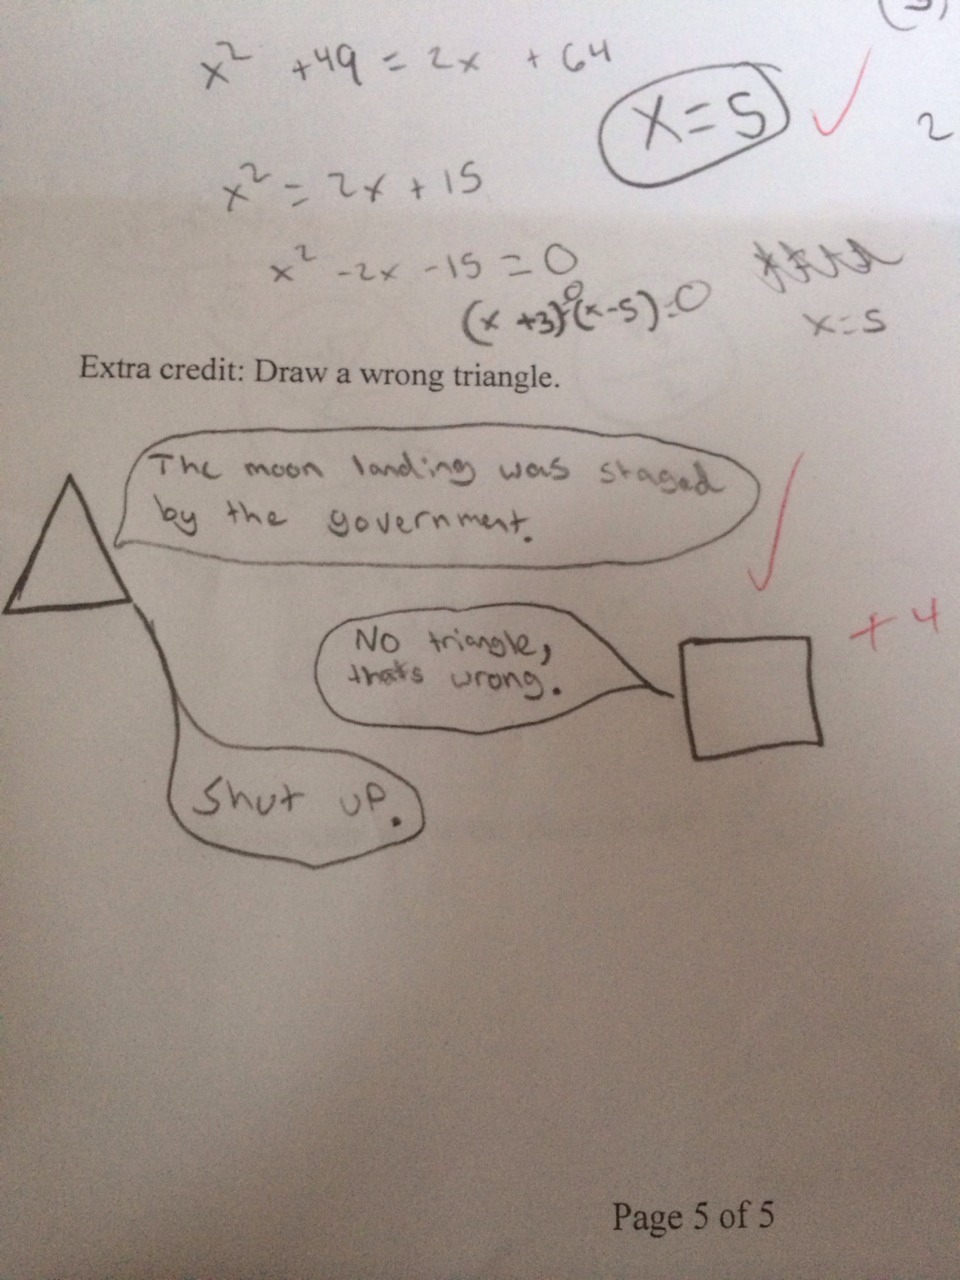 x² +49 = 2x + 64
x = 5
2
x² = 2x + 15
x² -2x -15 = 0
(x +3)(x-5)=0
x=5
Extra credit: Draw a wrong triangle.
The moon landing was staged
by the government.
+4
No triangle,
thats wrong.
Shut up.
Page 5 of 5